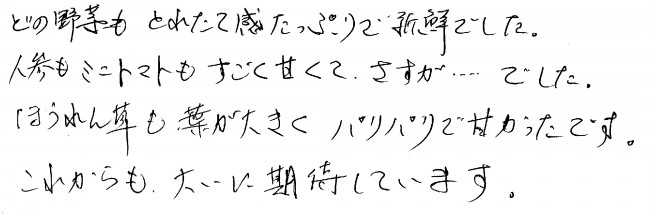 どの野菜も とれたて感たっぷりで新鮮でした。
人参も ミニトマトも すごく甘くて、さすが…… でした。
ほうれん草も 葉が大きく パリパリで甘かったです。
これからも、大いに期待しています。